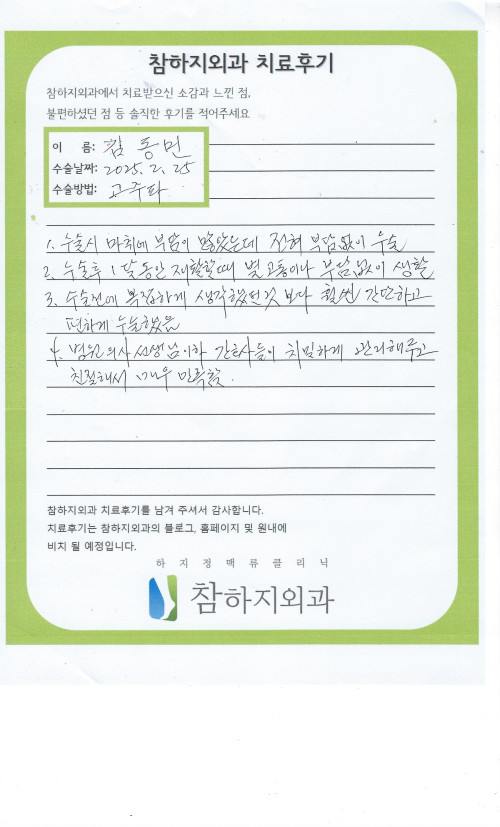 참하지외과 치료후기
참하지외과에서 치료받으신 소감과 느낀 점,
불편하셨던 점 등 솔직한 후기를 적어주세요
이 름: 김동민
수술날짜: 2025. 2. 25
수술방법: 고주파
1. 수술시 마취에 부담이 많았는데 전혀 부담없이 수술
2. 수술후 1달동안 재활할때 별 고통이나 부담없이 생활
3. 수술전에 복잡하게 생각했던것 보다 훨씬 간단하고
편하게 수술했음
4. 병원 의사 선생님이하 간호사들이 치밀하게 관리해주고
친절해서 매우 만족함.
참하지외과 치료후기를 남겨 주셔서 감사합니다.
치료후기는 참하지외과의 블로그, 홈페이지 및 원내에
비치 될 예정입니다.
하지정맥류클리닉
참하지외과